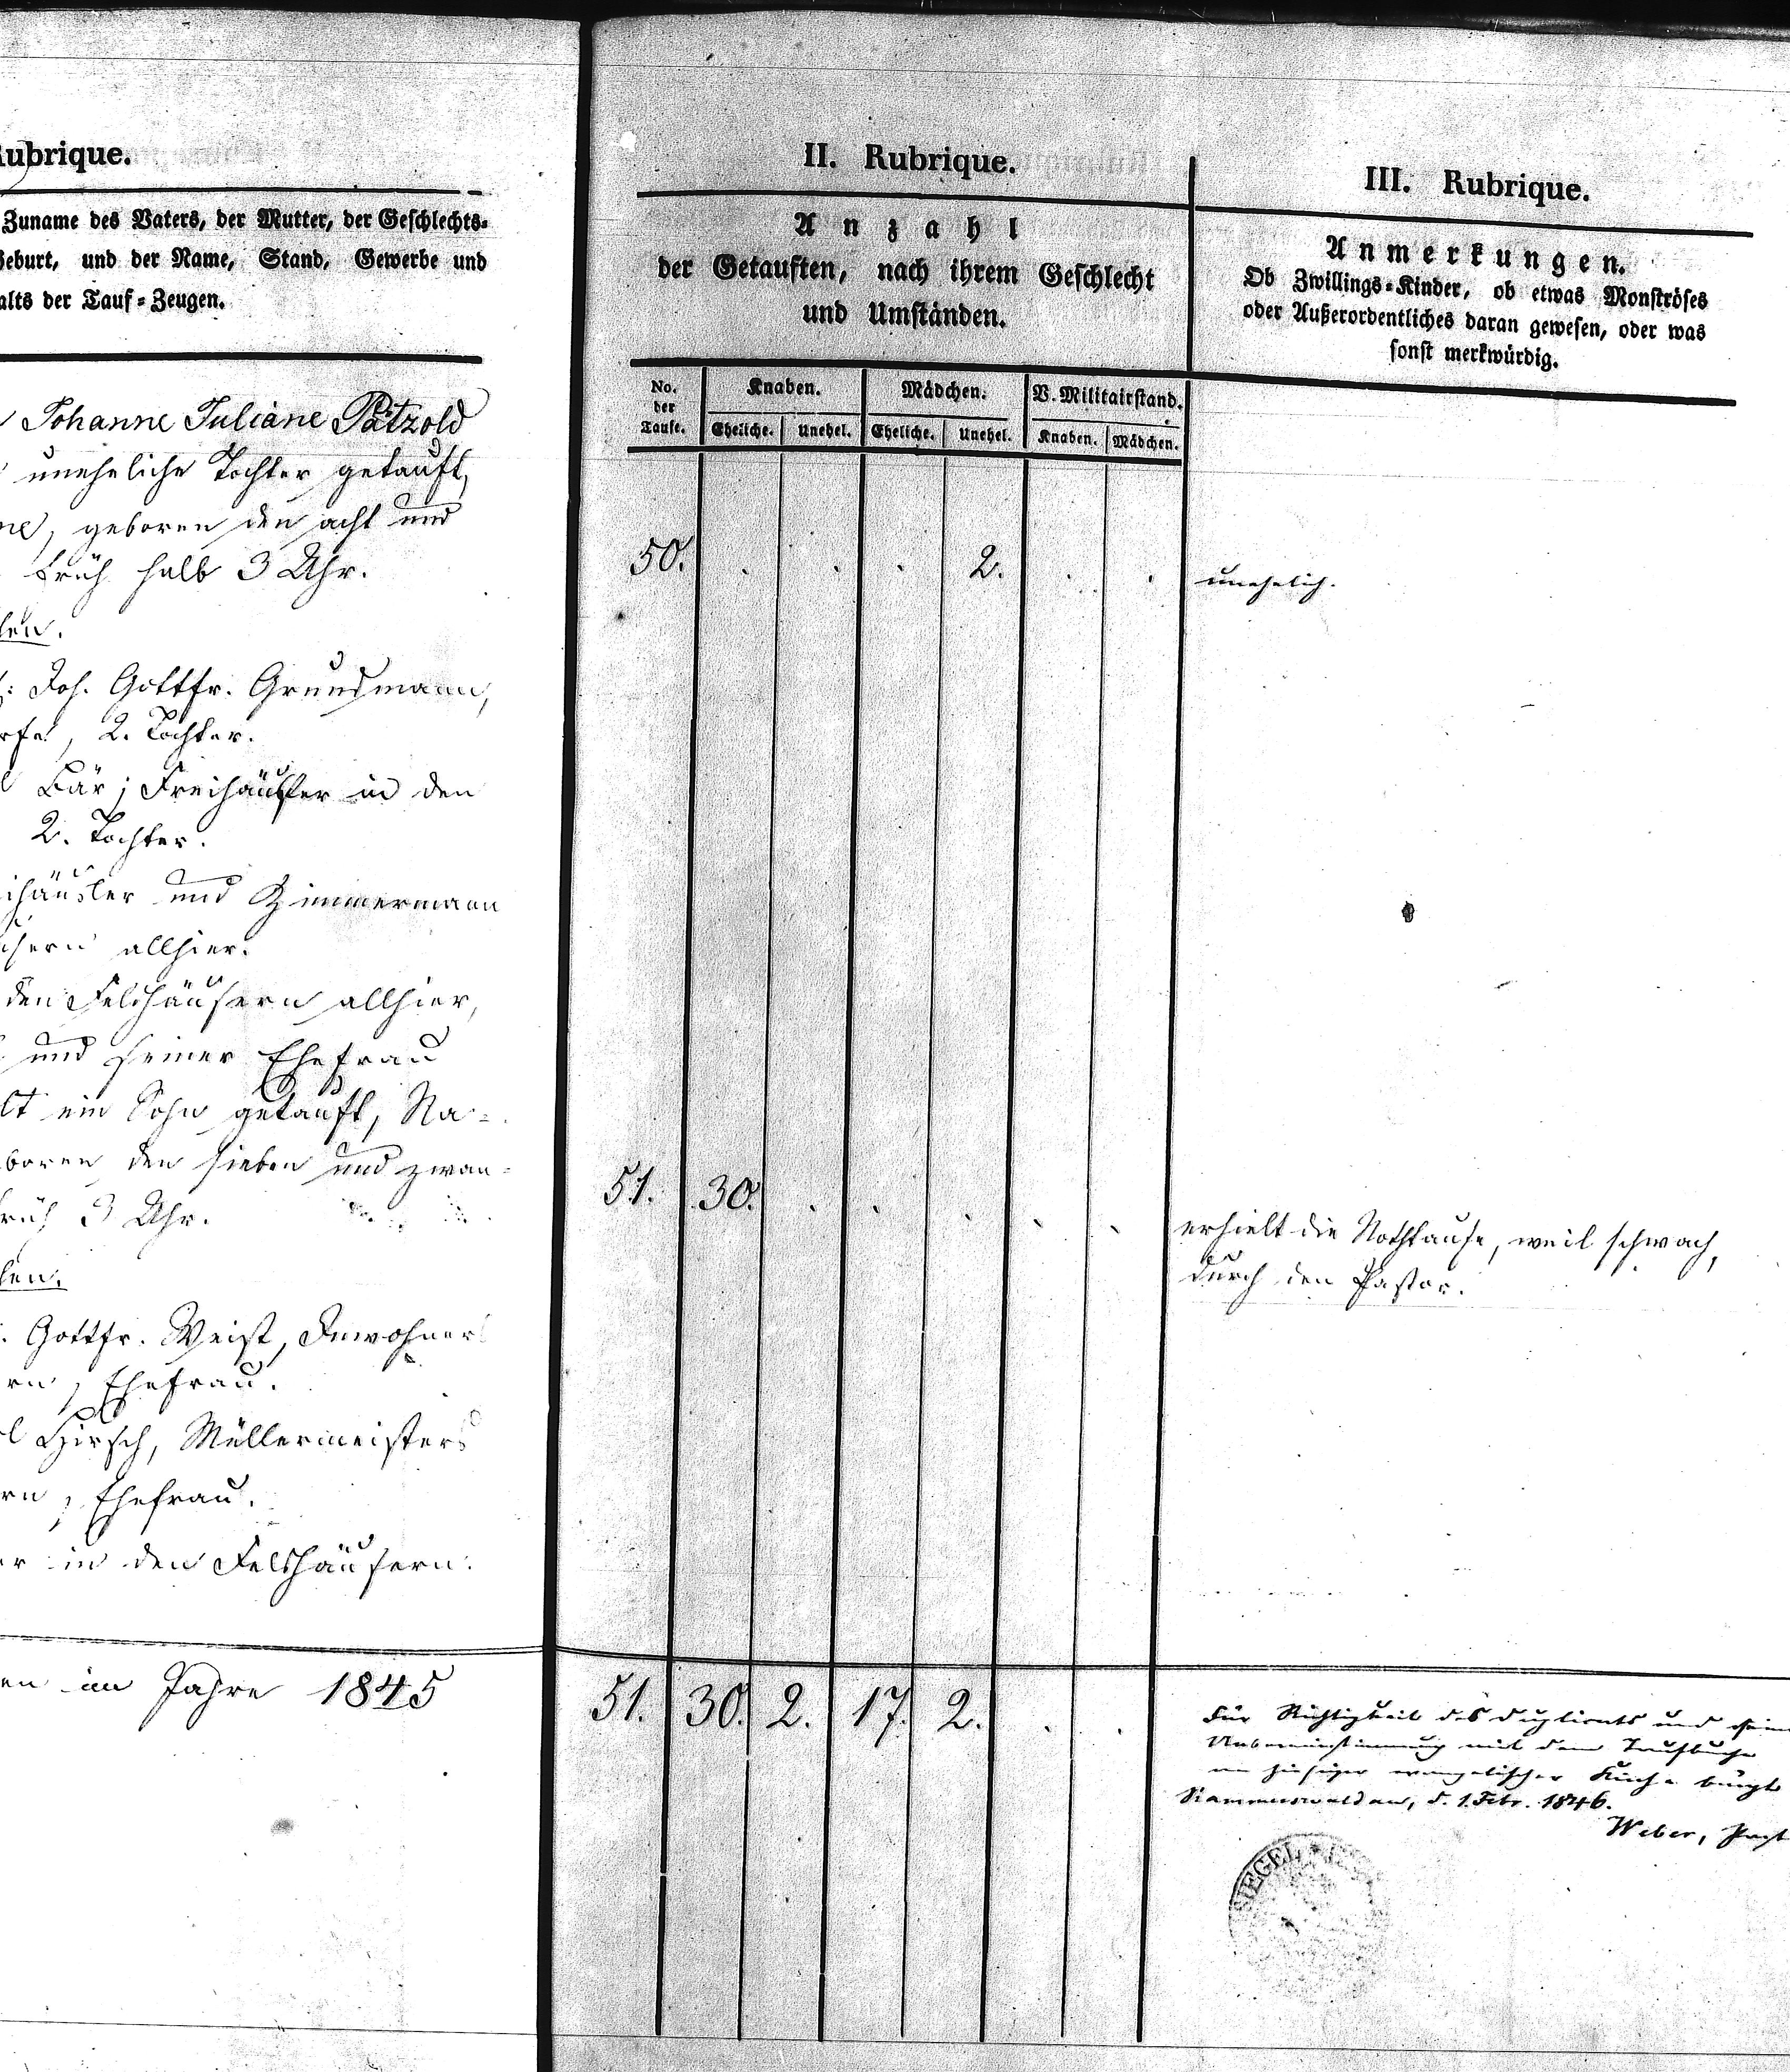 Rubrique.
Zuname des Vaters, der Mutter, der Geschlechts-
Geburt, und der Name, Stand, Gewerbe und
alts der Tauf-Zeugen.
Johanne Juliane Pätzold
uneheliche Tochter getauft,
ne, geboren den acht und
früh halb 3 Uhr.
hen.
Joh. Gottfr. Grundmann,
rfe, 2. Tochter.
l Bär, Freihäusler in den
2. Tochter.
ihäusler und Zimmermann
hern allhier.
den Feldhäusern allhier,
und seiner Ehefrau
lt ein Sohn getauft, Na-
boren den sieben und zwan-
früh 3 Uhr.
hen.
Gottfr. Weist, Inwohners
rn, Ehefrau.
l Hirsch, Müllermeisters
rn, Ehefrau.
er in den Feldhäusern.
en im Jahre 1845
II. Rubrique.
Anzahl
der Getauften, nach ihrem Geschlecht
und Umständen.
No. der Taufe. Knaben. Mädchen. V. Militairstand.
Eheliche. Unehel. Eheliche. Unehel. Knaben. Mädchen.
50. . . . 2. . .
51. 30. . . . . .
51. 30. 2. 17. 2. . .
III. Rubrique.
Anmerkungen.
Ob Zwillings-Kinder, ob etwas Monströses
oder Außerordentliches daran gewesen, oder was
sonst merkwürdig.
unehelich.
erhielt die Nothtaufe, weil schwach,
durch den Pastor.
Für Richtigkeit des Duplicats und sein
Uebereinstimmung mit dem Taufbuche
hiesiger evangelischer Kirche bürgt
Kammerswaldau, d. 1. Febr. 1846.
Weber, Past
SIEGEL